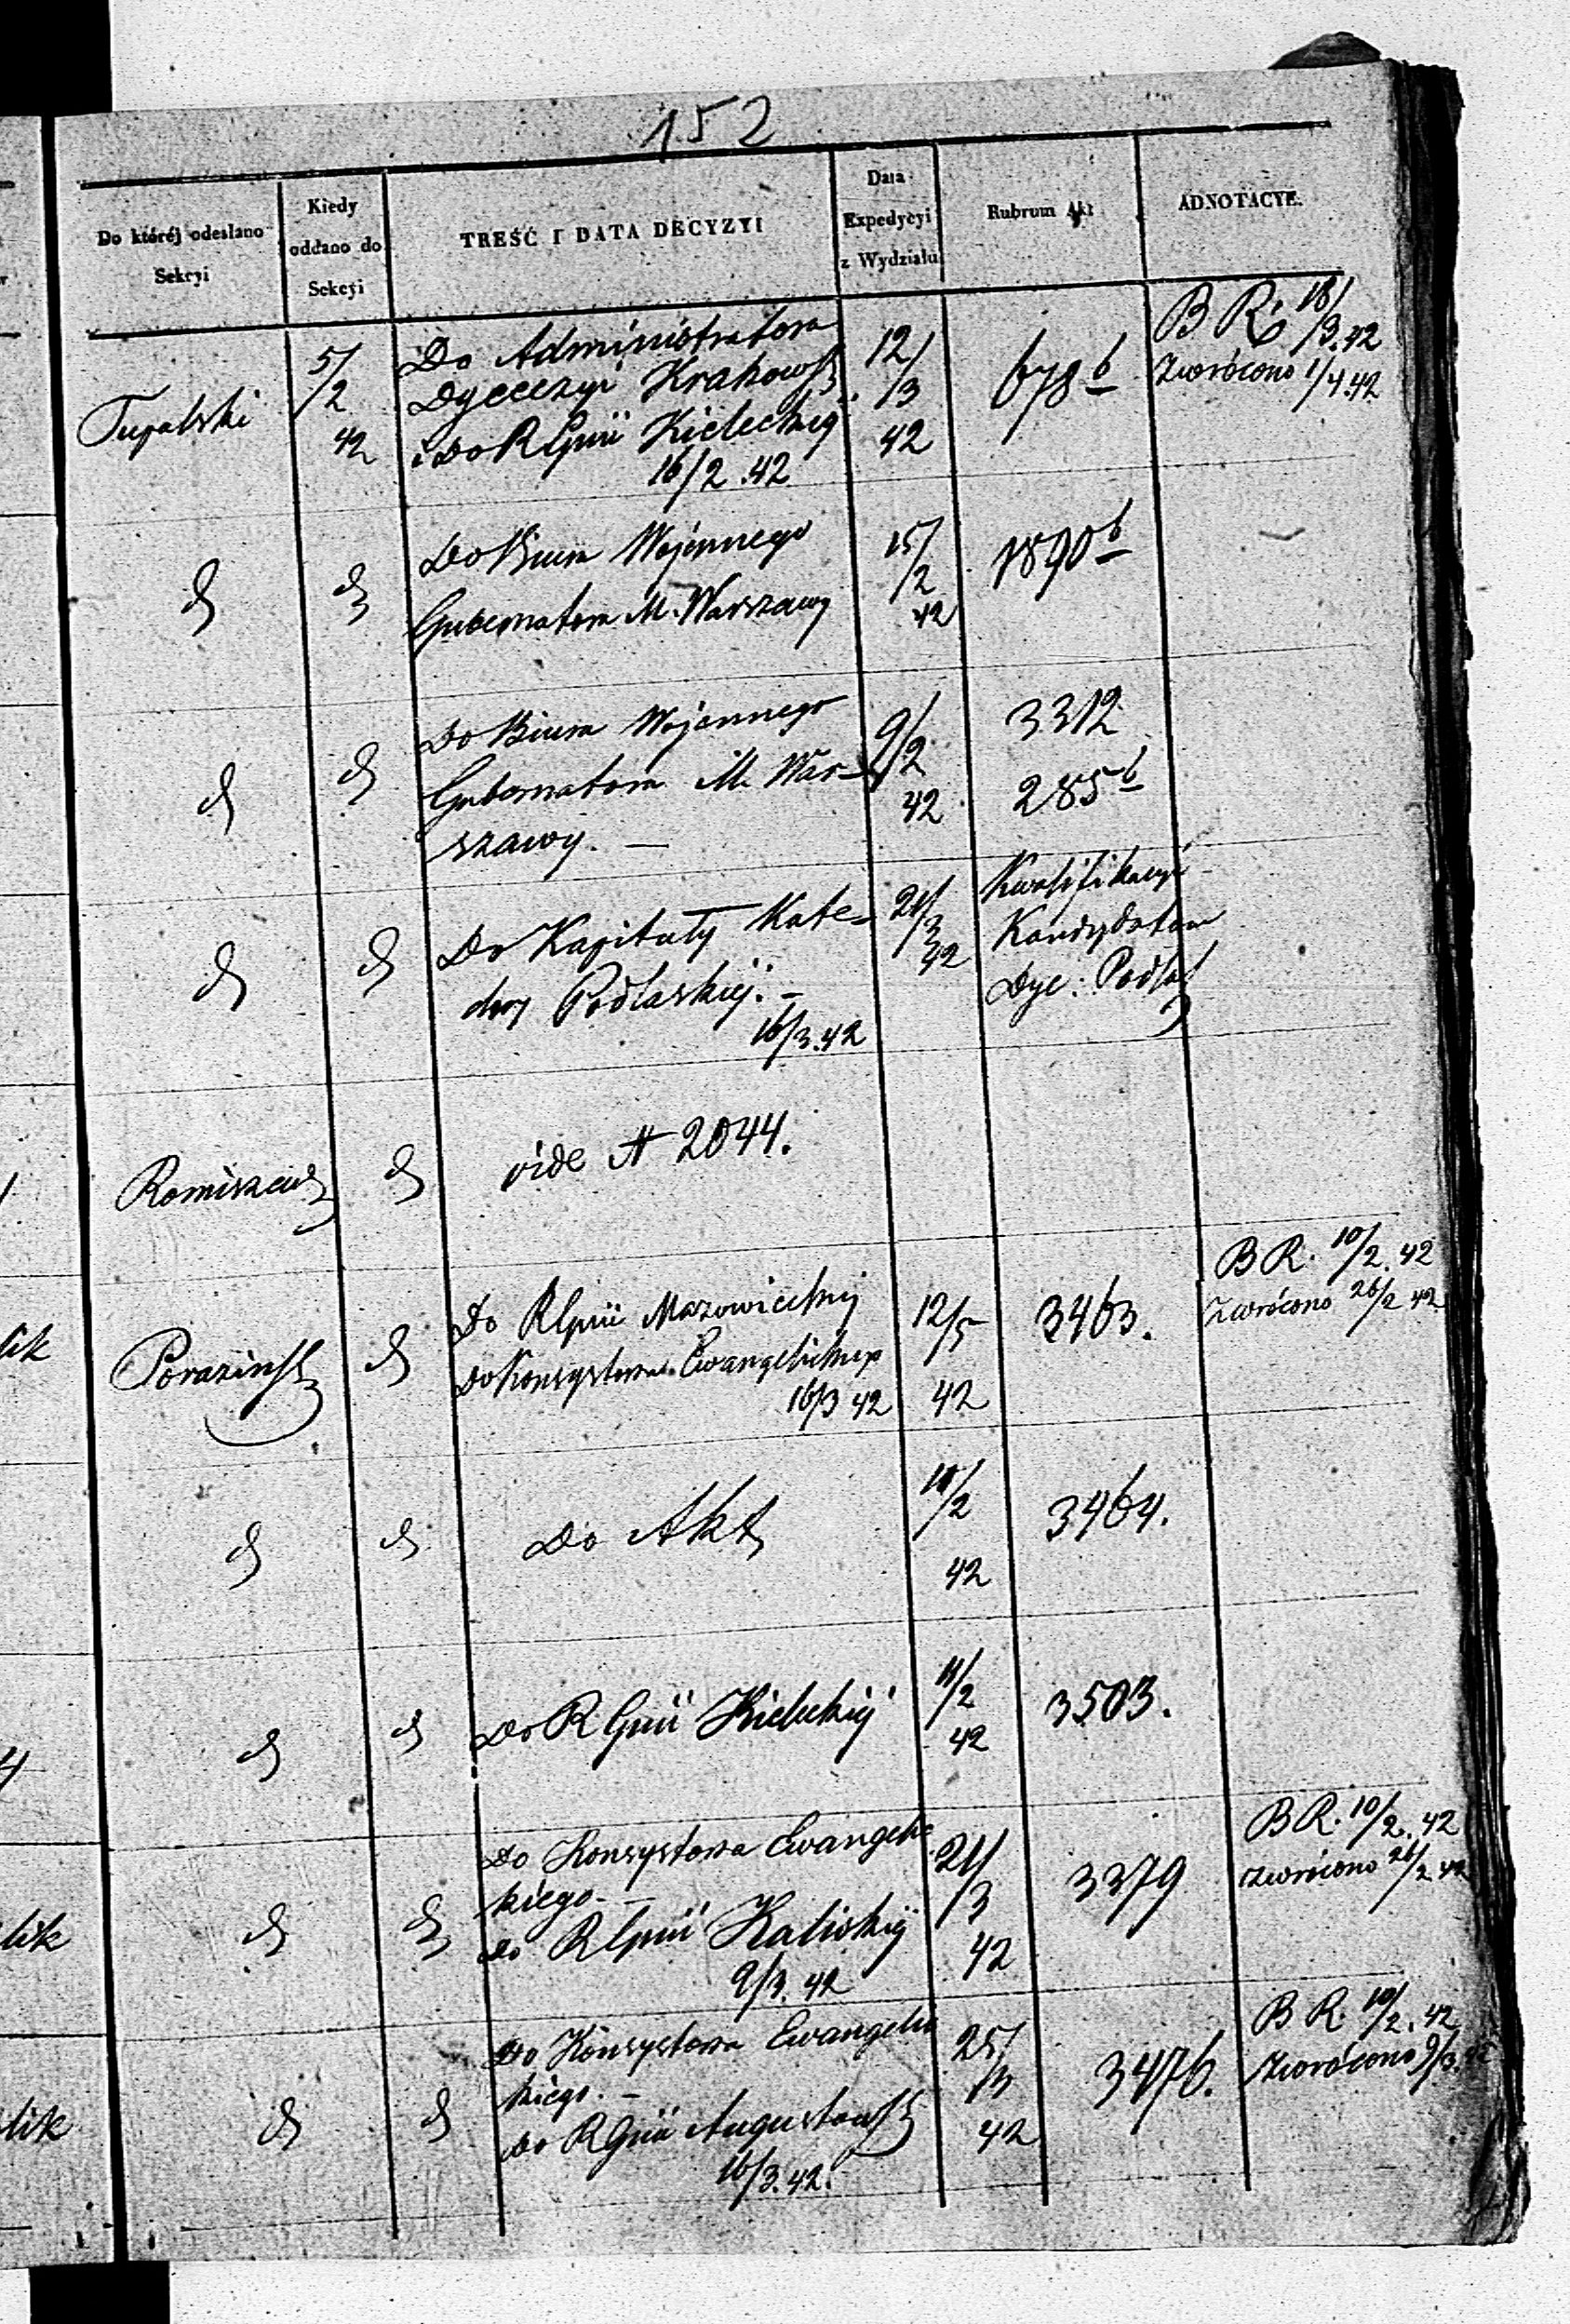 152
Do któréj odesłano
Sekcyi
Kiedy
oddano do
Sekcyi
TREŚĆ I DATA DECYZYI
Data
Expedycyi
z Wydziału
Rubrum Akt
ADNOTACYE.
Tupalski
5/2
42
Do Administratora
Dyecezyi Krakows
i Do R Gnii Kieleckiey
16/2 .42
12/3
42
678 b
B R. 18/3.42
Zwrócono 1/4.42
d
d
Do Biura Wojennego
Gubernatora M. Warszawy
15/2
42
1890 b
d
d
Do Biura Wojennego
Gubernatora M. War-
szawy. —
9/2
42
3312
285 b
d
d
Do Kapituły Kate-
dry Podlaskiéj. -
16/3.42
21/3
42
Kwalifikacyi
Kandydatów
Dye: Podlas
d
vide N 2044.
d
Do R Gnii Mazowieckiej
Do Konsystorza Ewangelickiego
16/3 42
12/5
42
3463.
B R. 10/2. 42
Zwrócono 26/2 42
d
d
Do Akt
10/2
42
3464.
d
d
Do R Gnii Kieleckiej
11/2
42
3503.
d
d
Do Konsystorza Ewangelic
kiego. -
Do R Gnii Kaliskiej
9/3. 42
21/3
42
3379
B R. 10/2. 42
Zwrócono 26/2 42
d
d
Do Konsystorza Ewangelic
kiego. -
Do R Gnii Augustows
16/3.42.
25/3
42
3476.
B R. 10/2. 42
Zwrócono 9/3. 42
lik
4
lik
lik